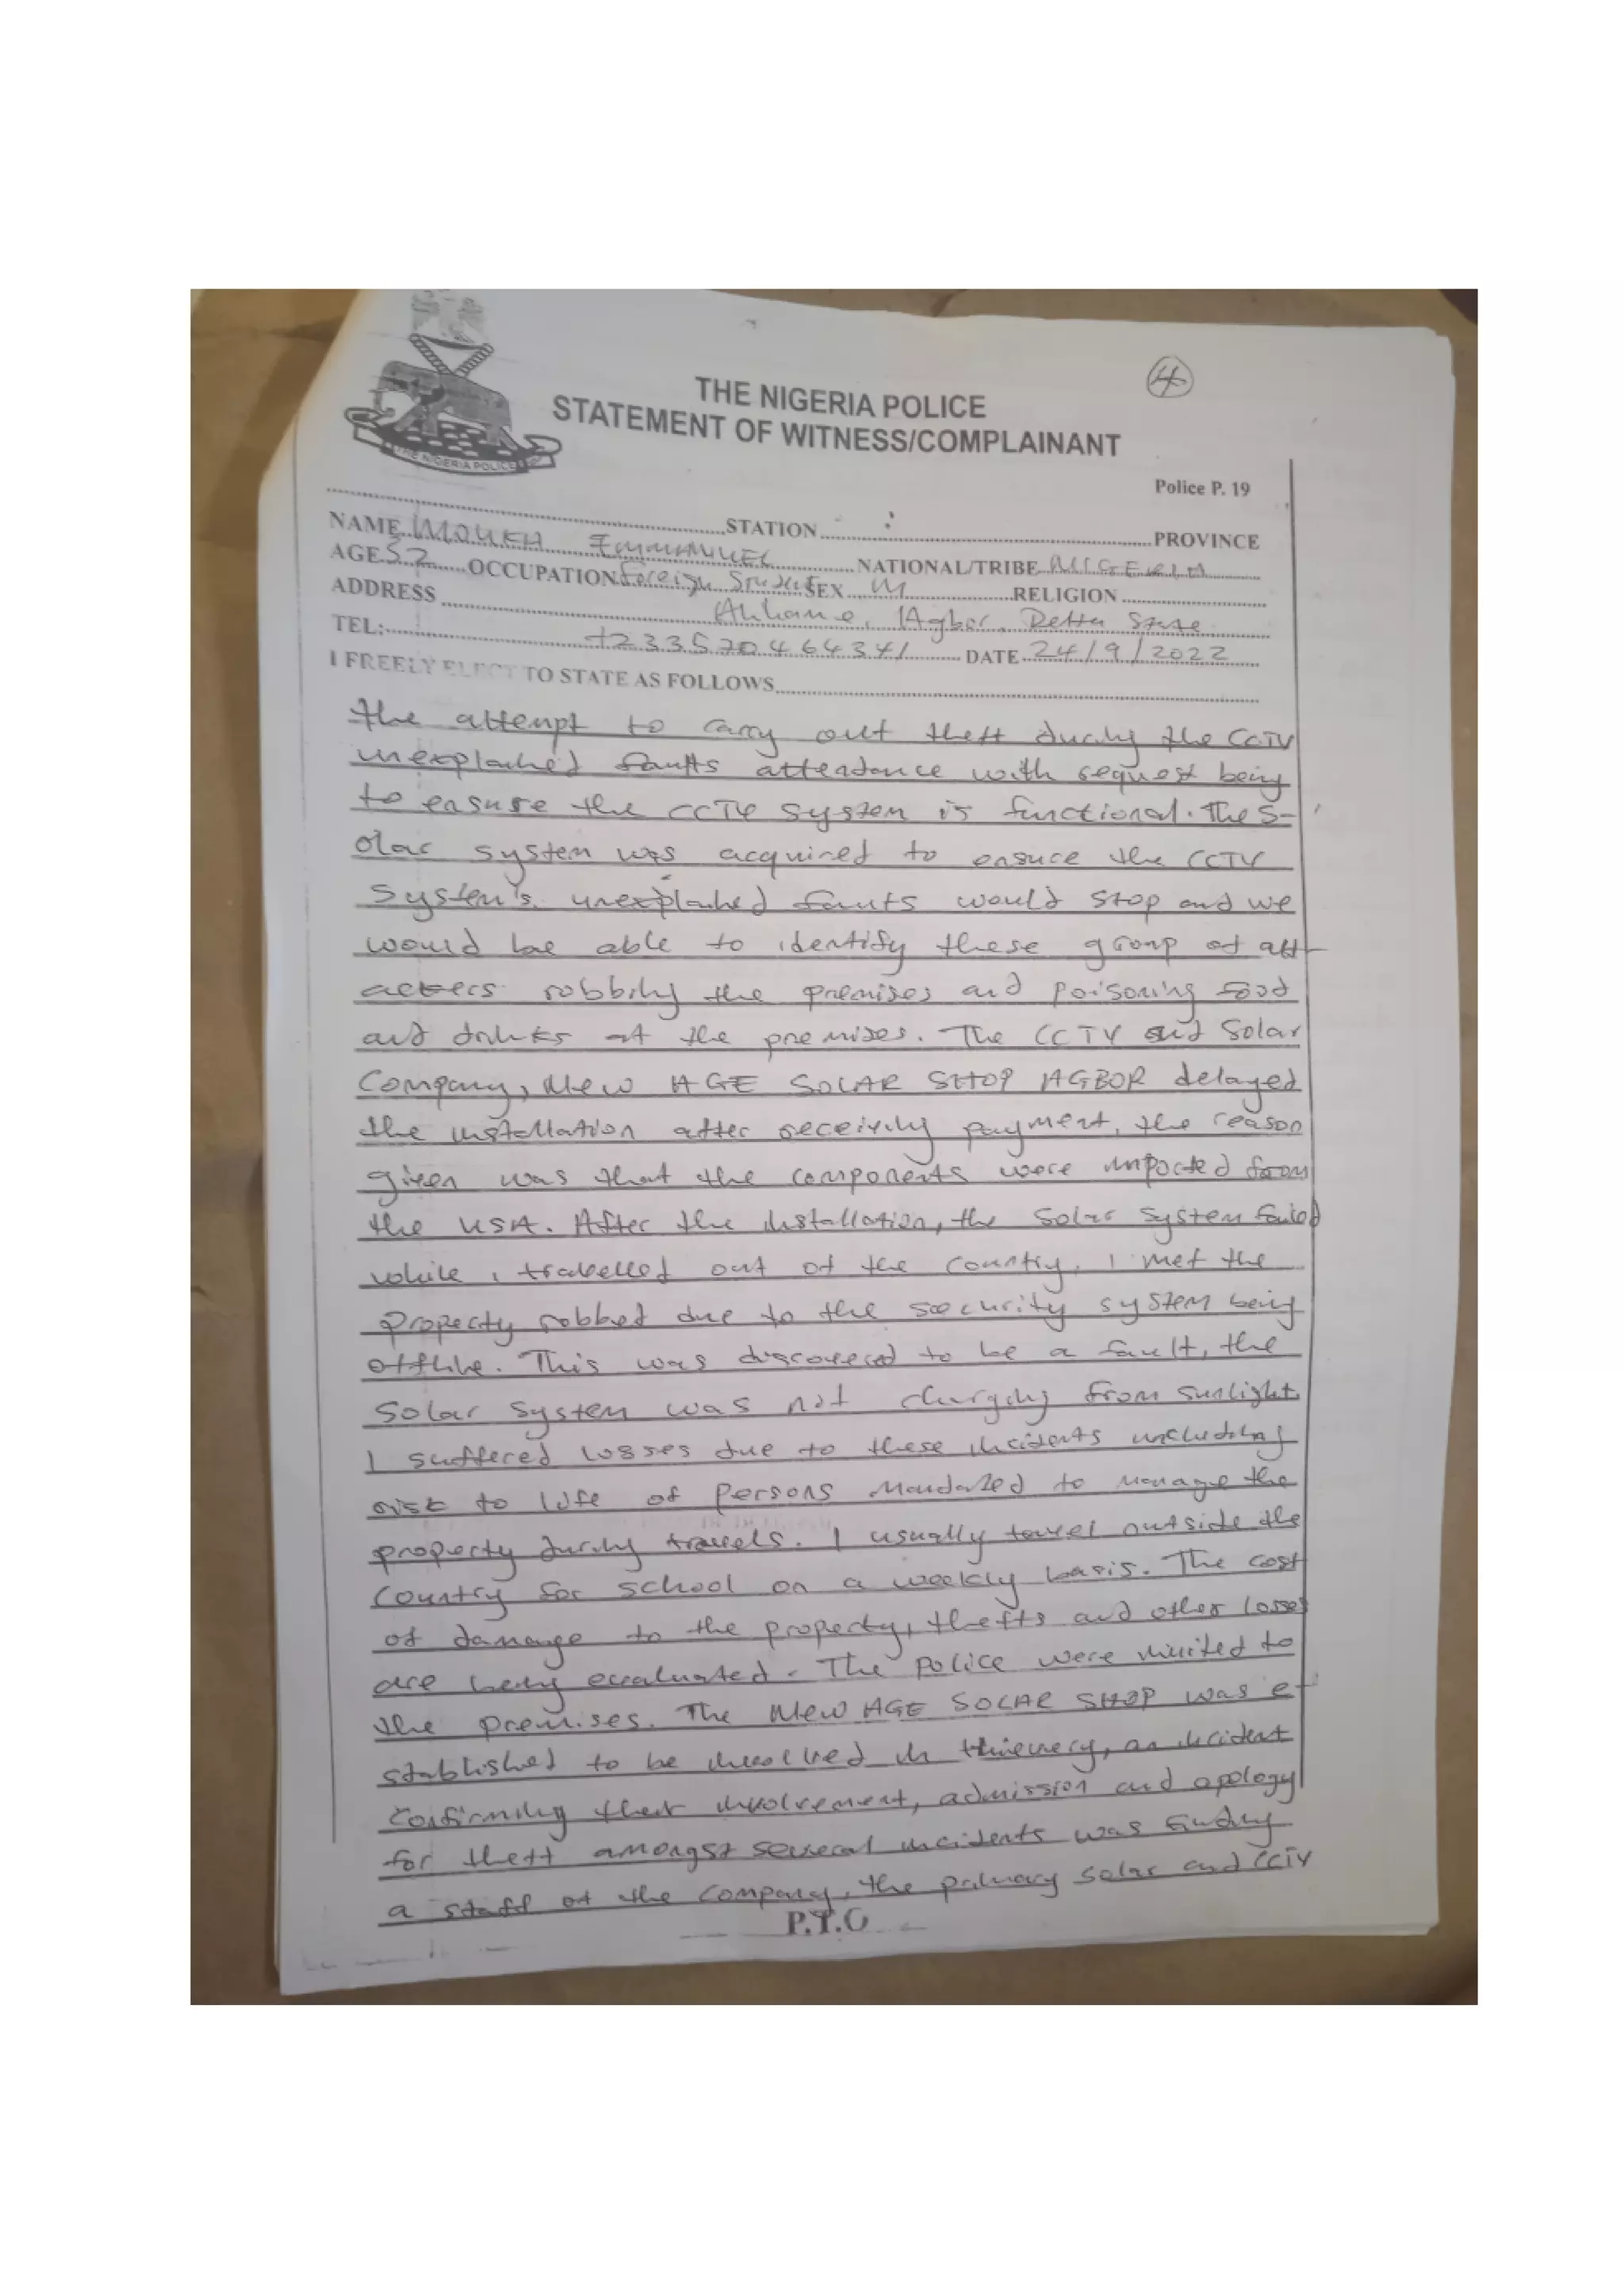 4
THE NIGERIA POLICE
STATEMENT OF WITNESS/COMPLAINANT
THE NIGERIA POLICE
Police P. 19
STATION PROVINCE
NAME EMMANUEL NATIONAL/TRIBE NIGERIA
AGE 32 OCCUPATION Foreign Student SEX M RELIGION
ADDRESS Alihame, Agbor, Delta State
TEL: +233570464341 DATE 24/9/2022
I FREELY ELECT TO STATE AS FOLLOWS
the attempt to carry out theft during the CCTV
unexplained faults attendance with request being
to ensure the CCTV system is functional. The s-
olar system was acquired to ensure the CCTV
system's unexplained faults would stop and we
would be able to identify these group of att-
ackers robbing the premises and poisoning food
and drinks at the premises. The CCTV and Solar
Company, New AGE SOLAR SHOP AGBOR delayed
the installation after receiving payment, the reason
given was that the components were imported from
the USA. After the installation, the solar system failed
while i travelled out of the country, I met the
property robbed due to the security system being
offline. This was discovered to be a fault, the
solar system was not charging from sunlight.
I suffered losses due to these incidents including
risk to life of persons mandated to manage the
property during travels. I usually travel outside the
country for school on a weekly basis. The cost
of damage to the property, thefts and other losses
are being evaluated. The police were invited to
the premises. The New AGE SOLAR SHOP was e-
stablished to be involved in thievery, an incident
confirming their involvement, admission and apology
for theft amongst several incidents was finding
a staff of the company, the primary solar and CCTV
P.T.O